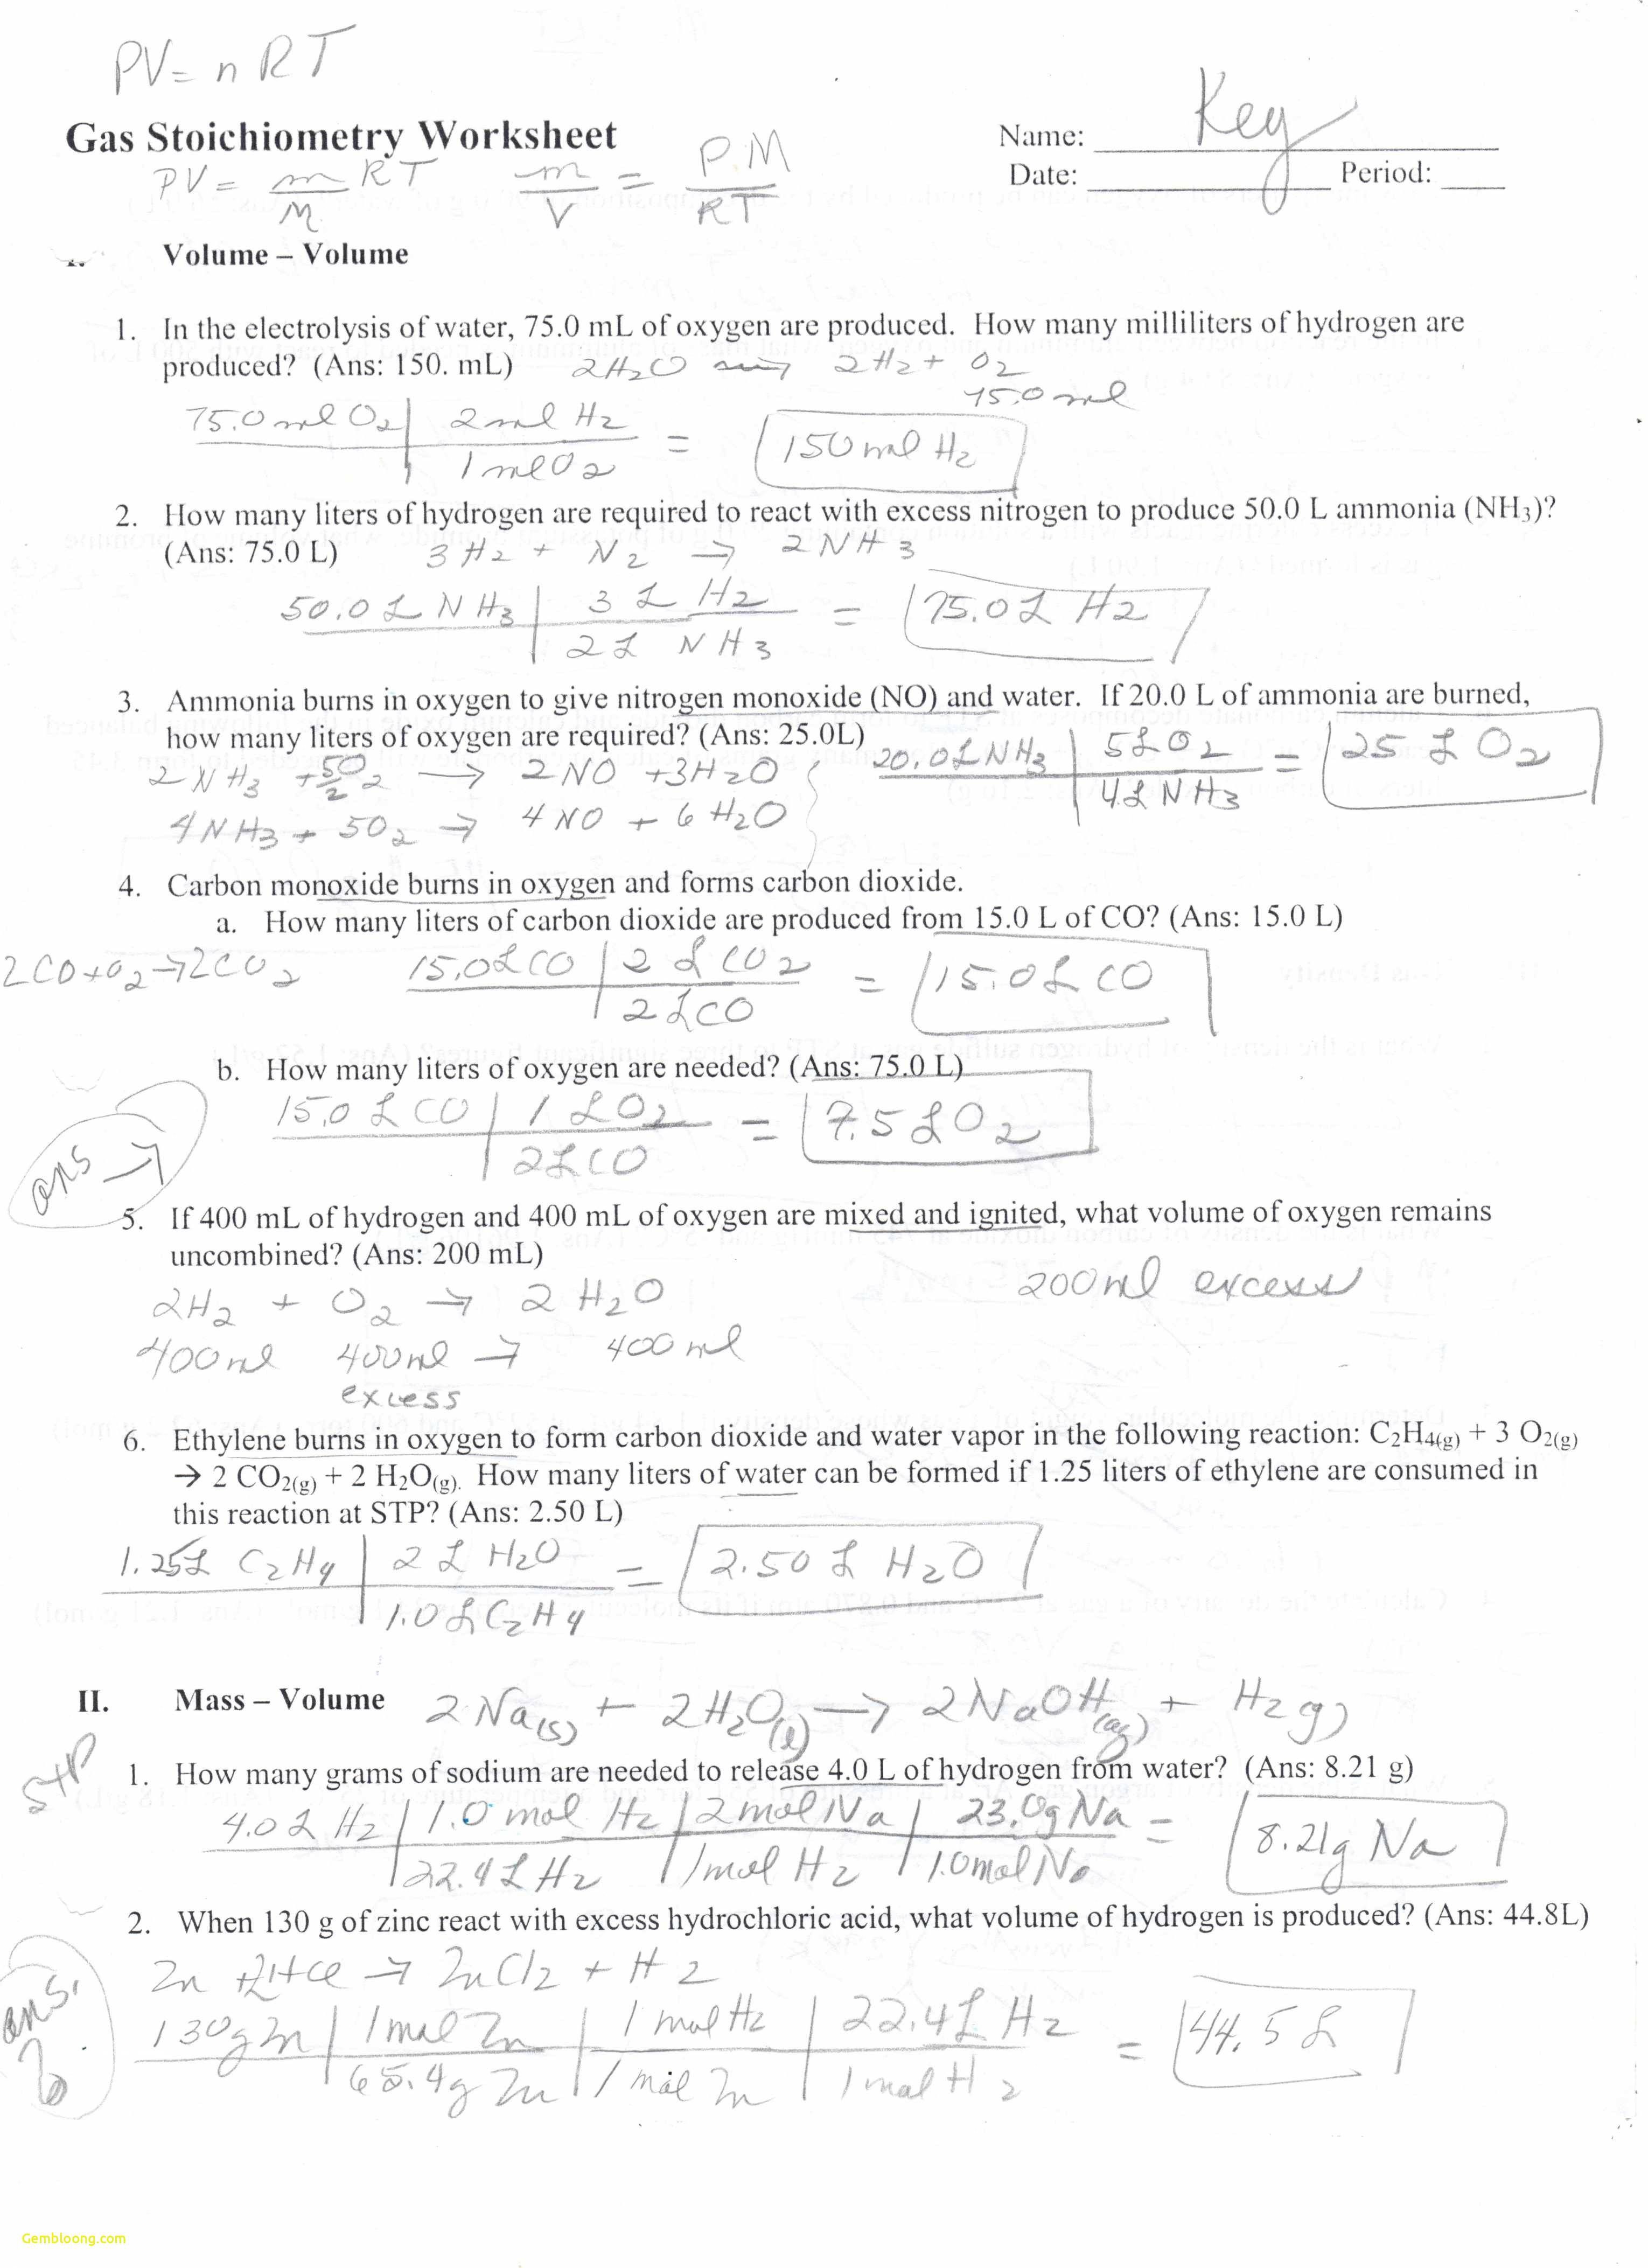 PV = nRT
Gas Stoichiometry Worksheet
Name: Key
Date: Period:
PV = m/M RT m/V = P.M/RT
Volume – Volume
1. In the electrolysis of water, 75.0 mL of oxygen are produced. How many milliliters of hydrogen are
produced? (Ans: 150. mL) 2H2O → 2H2 + O2
75.0 ml
75.0 ml O2 | 2 ml H2 = 150 ml H2
1 ml O2
2. How many liters of hydrogen are required to react with excess nitrogen to produce 50.0 L ammonia (NH3)?
(Ans: 75.0 L) 3H2 + N2 → 2NH3
50.0 L NH3 | 3 L H2 = 75.0 L H2
2 L NH3
3. Ammonia burns in oxygen to give nitrogen monoxide (NO) and water. If 20.0 L of ammonia are burned,
how many liters of oxygen are required? (Ans: 25.0L) 20.0 L NH3 | 5 L O2 = 25 L O2
4 L NH3
2NH3 + 5/2 O2 → 2NO + 3H2O
4NH3 + 5O2 → 4NO + 6H2O
4. Carbon monoxide burns in oxygen and forms carbon dioxide.
a. How many liters of carbon dioxide are produced from 15.0 L of CO? (Ans: 15.0 L)
2CO + O2 → 2CO2 15.0 L CO | 2 L CO2 = 15.0 L CO
2 L CO
b. How many liters of oxygen are needed? (Ans: 75.0 L)
15.0 L CO | 1 L O2 = 7.5 L O2
2 L CO
ans →
5. If 400 mL of hydrogen and 400 mL of oxygen are mixed and ignited, what volume of oxygen remains
uncombined? (Ans: 200 mL)
200 ml excess
2H2 + O2 → 2H2O
400 ml 400 ml → 400 ml
excess
6. Ethylene burns in oxygen to form carbon dioxide and water vapor in the following reaction: C2H4(g) + 3 O2(g)
→ 2 CO2(g) + 2 H2O(g). How many liters of water can be formed if 1.25 liters of ethylene are consumed in
this reaction at STP? (Ans: 2.50 L)
1.25 L C2H4 | 2 L H2O = 2.50 L H2O
1.0 L C2H4
II. Mass – Volume 2Na(s) + 2H2O(l) → 2NaOH(aq) + H2(g)
STP
1. How many grams of sodium are needed to release 4.0 L of hydrogen from water? (Ans: 8.21 g)
4.0 L H2 | 1.0 mol H2 | 2 mol Na | 23.0g Na = 8.21g Na
22.4 L H2 | 1 mol H2 | 1.0 mol Na
2. When 130 g of zinc react with excess hydrochloric acid, what volume of hydrogen is produced? (Ans: 44.8L)
ans.
Zn + 2HCl → ZnCl2 + H2
130g Zn | 1 mol Zn | 1 mol H2 | 22.4 L H2 = 44.5 L
65.4g Zn | 1 mol Zn | 1 mol H2
Gembloong.com